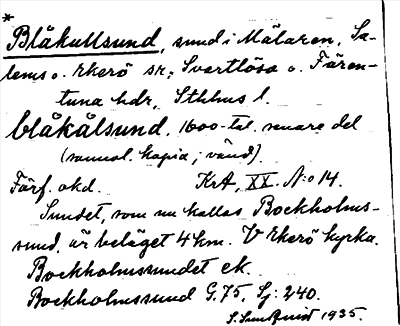 *
Blåkullsund, sund i Mälaren, Sa-
lems o. Ekerö sn; Svartlösa o. Fären-
tuna hdr, Sthlms l.
blåkålsund, 1600-tal. senare del
(samml. kopia; vänd).
Färf. okd. KrA, XX. N:o 14.
Sundet, som nu kallas Bockholms-
sund, är beläget 4 km. V Ekerö kyrka.
Bockholmssundet ek.
Bockholmssund G.75, Lj: 240.
S. Sundquist 1935.